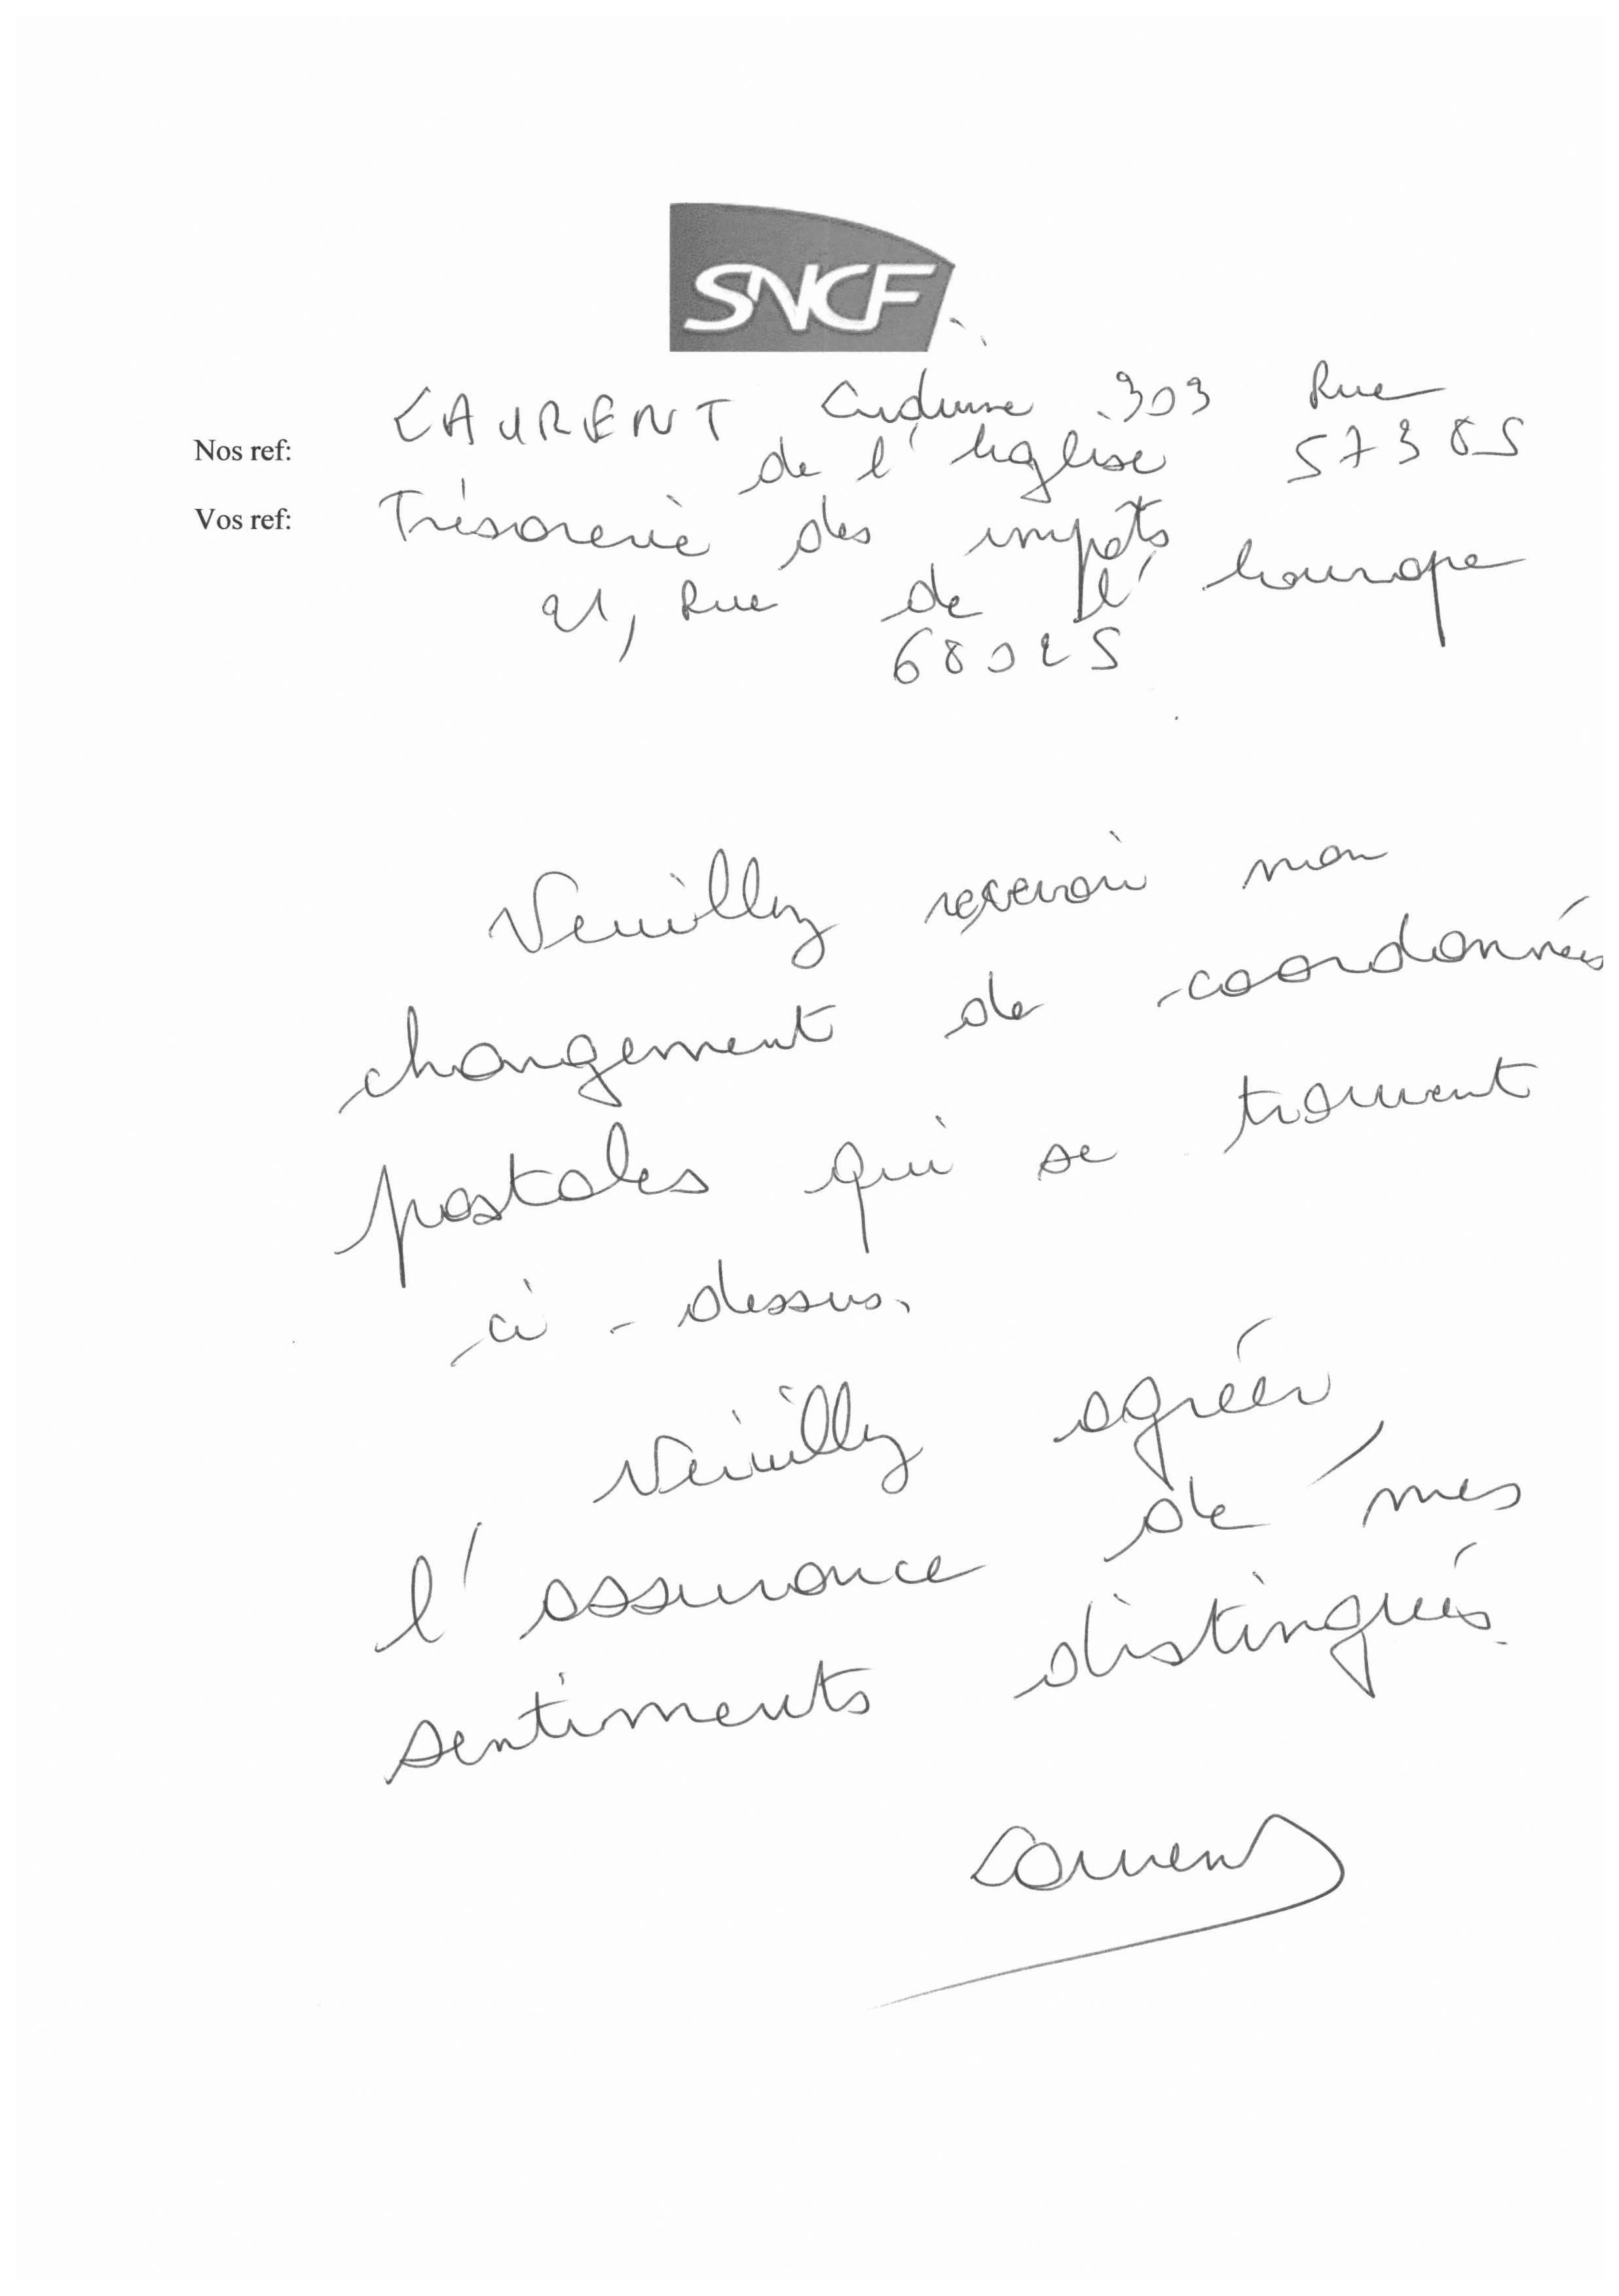 SNCF
LAURENT 303 Rue
Nos ref: de l'église 57385
Vos ref: Trésorerie des impots
21, Rue de l'europe
68025
Veuillez recevoir mon
changement de coordonnées
postales qui se trouvent
ci-dessus.
Veuillez agréer,
l'assurance de mes
sentiments distingués.
Laurent